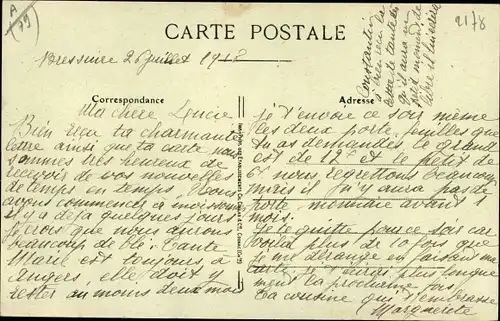 A
79
CARTE POSTALE
2178
Bressuire 26 Juillet 1917
Constantin
a bien eu la
lettre de tante
qu'il aura un
libre il lui écrira
Correspondance
Adresse
Ma chère Lucie
Bien reçu ta charmante
lettre ainsi que ta carte nous
sommes très heureux de
recevoir de vos nouvelles
de temps en temps. Nous
avons commencés à moissonner
il y a déja quelques jours
je crois que nous aurons
beaucoup de blé. Tante
Marie est toujours à
Angers, elle doit y
rester au moins deux mois
je t'envoie ce soir même
les deux porte feuilles que
tu as demandés, le grand
est de 12f et le petit de
6f nous regrettons beaucoup
mais il n'y aura pas de
porte monnaie avant 1
mois.
Je te quitte pour ce soir car
voilà plus de 10 fois que
je me dérange en faisant ma
carte. Je t'écrirai plus longue
ment la prochaine fois
Ta cousine qui t'embrasse
Marguerite